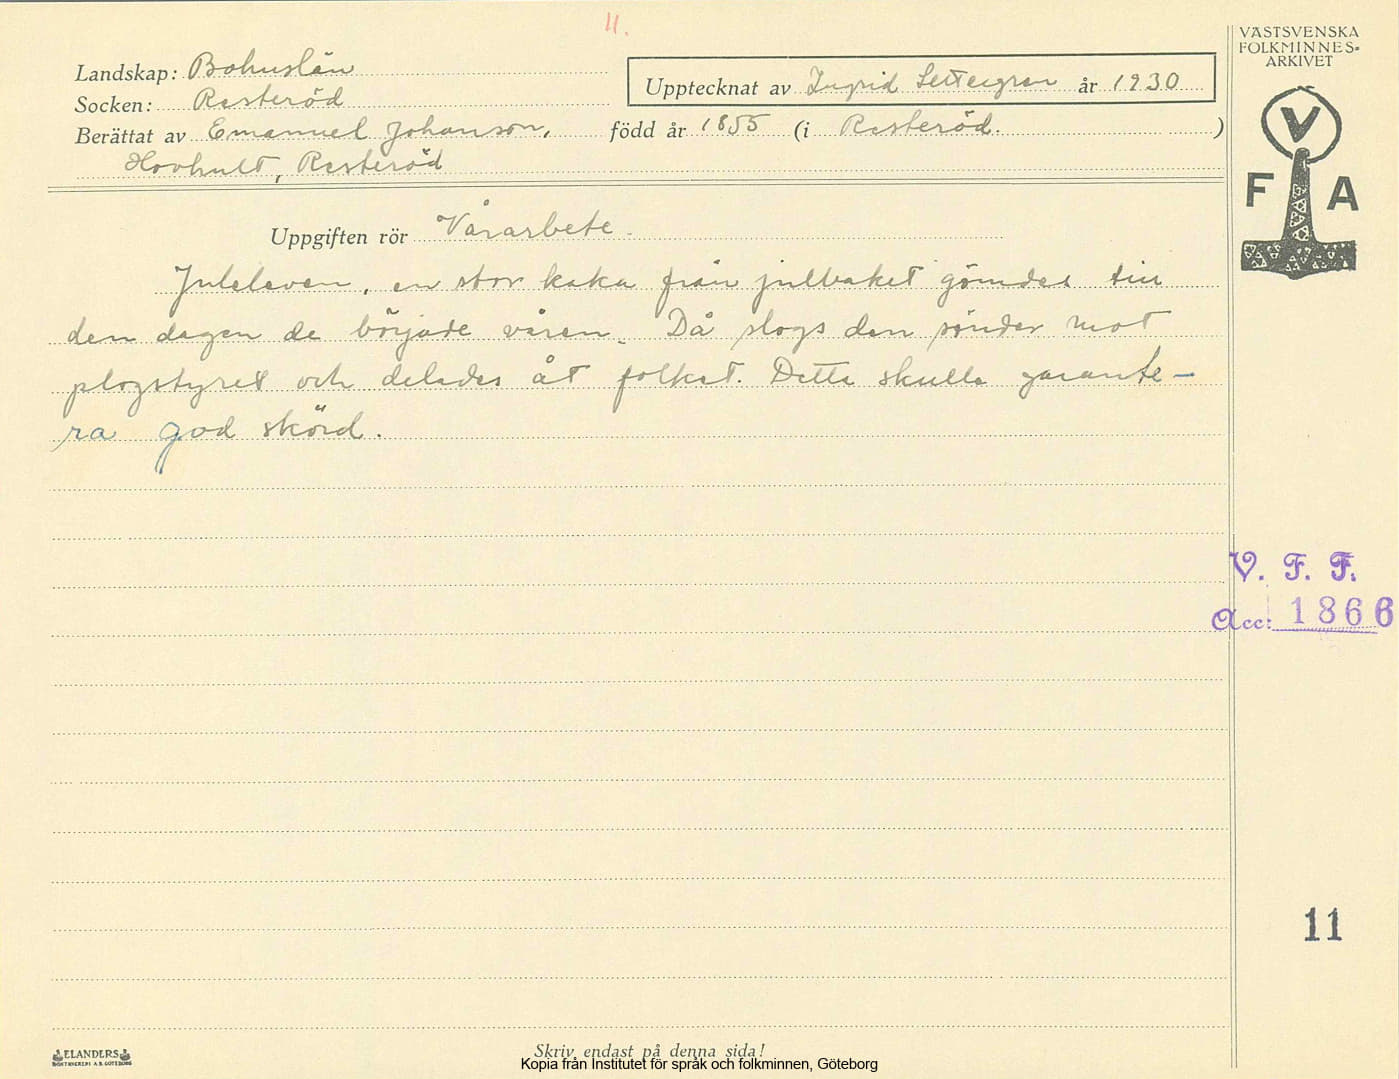 11.
VÄSTSVENSKA
FOLKMINNES-
ARKIVET
Landskap: Bohuslän
Socken: Resteröd
Upptecknat av Ingrid Settergren år 1930
Berättat av Emanuel Johanson, född år 1855 (i Resteröd. )
Hovhult, Resteröd
V
F A
Uppgiften rör Vårarbete.
Juleleven, en stor kaka från julbaket gömdes till
den dagen de började våren. Då slogs den sönder mot
plogstyret och delades åt folket. Detta skulle garante-
ra god skörd.
V. F. F.
Acc: 1866
11
ELANDERS
BOKTRYCKERI A.B. GÖTEBORG
Skriv endast på denna sida!
Kopia från Institutet för språk och folkminnen, Göteborg